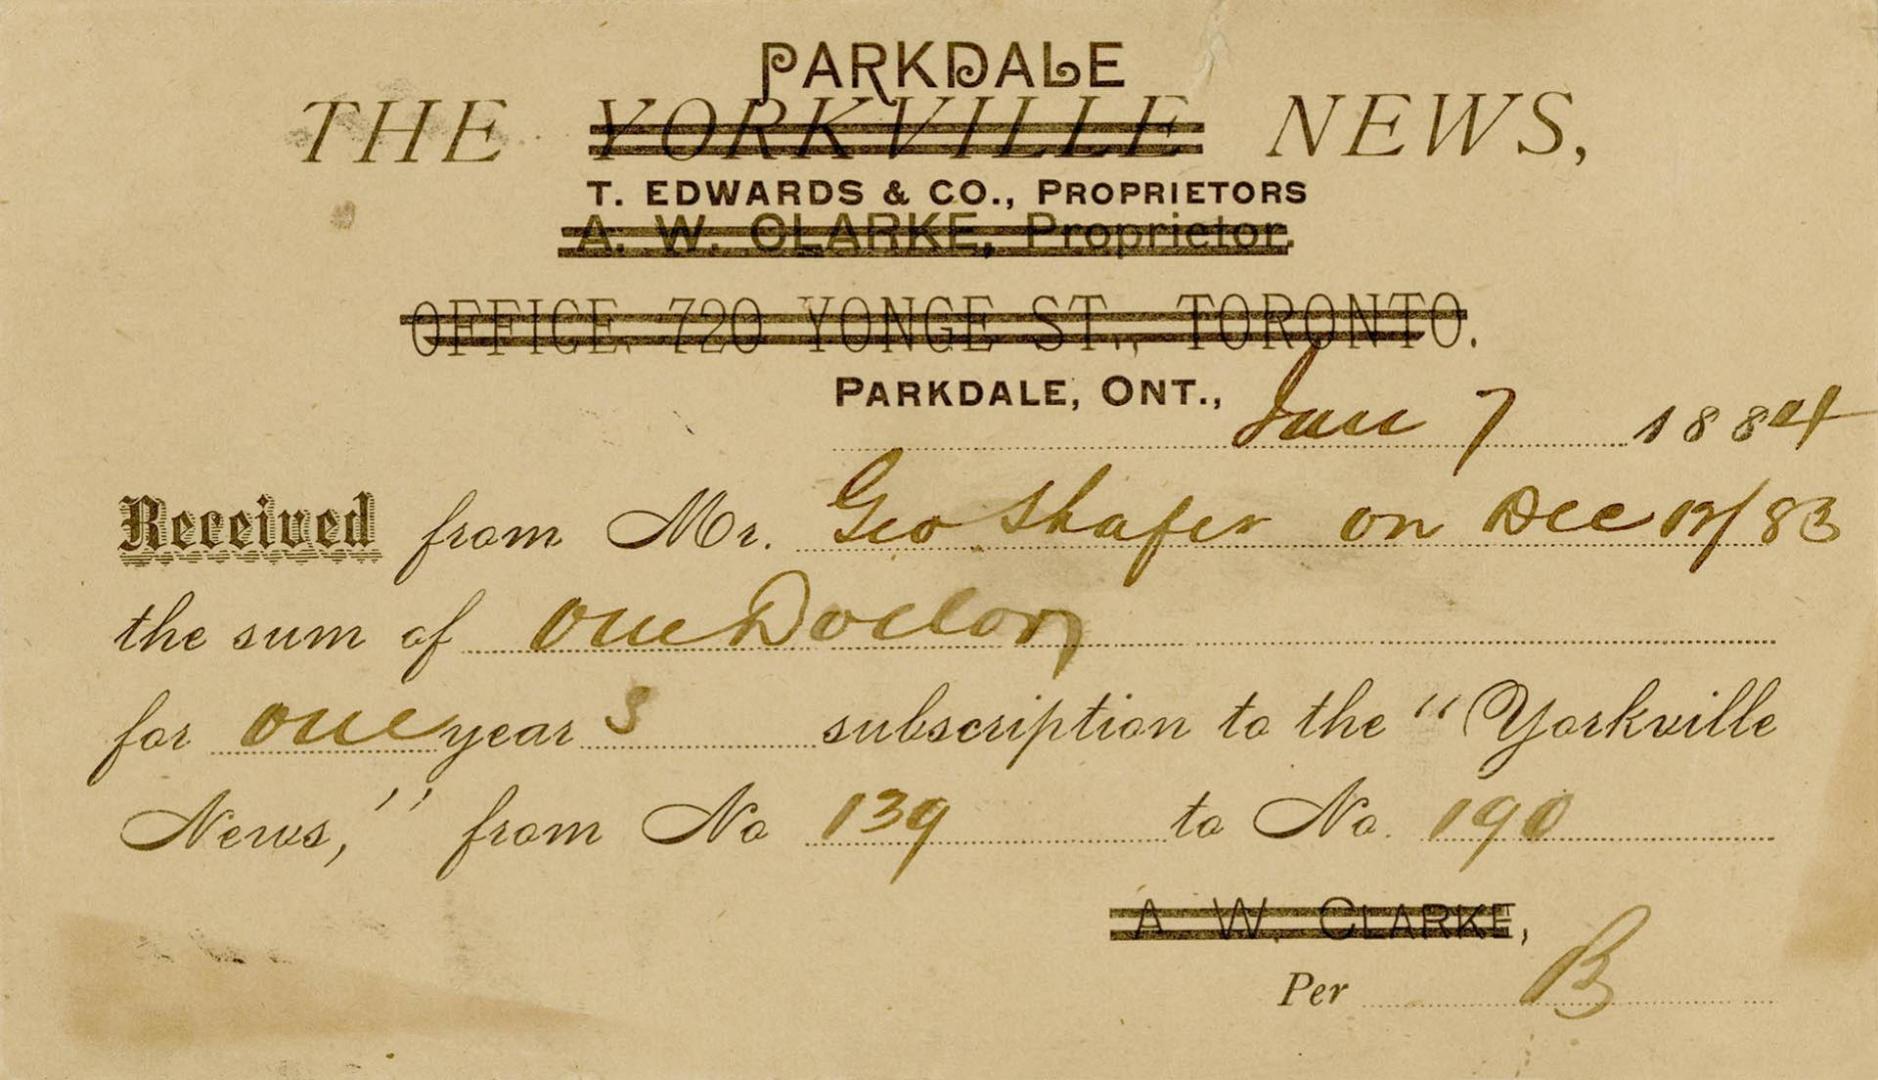 PARKDALE
THE YORKVILLE NEWS,
T. EDWARDS & CO., PROPRIETORS
A. W. CLARKE, Proprietor.
OFFICE, 720 YONGE ST., TORONTO.
PARKDALE, ONT.,
Jan 7 1884
Received from Mr. Geo Shafer on Dec 12/83
the sum of One Dollar
for one years subscription to the "Yorkville
News," from No 139 to No. 190
A. W. CLARKE,
Per B